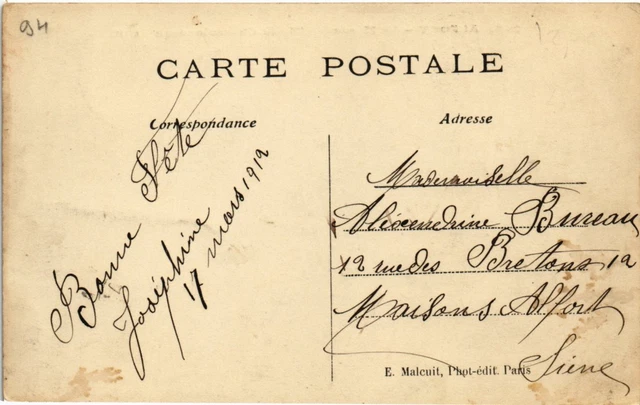 94
CARTE POSTALE
Correspondance
Adresse
Bonne Fête
Joséphine
17 mars 1912
Mademoiselle
Alexendrine Bureau
12 rue des Bretons 12
Maisons Alfort
Siene
E. Malcuit, Phot-édit. Paris